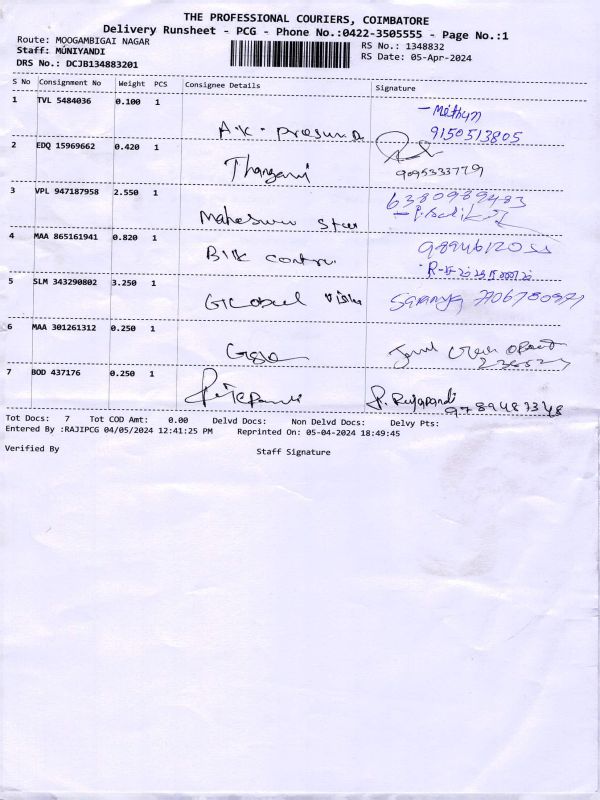 THE PROFESSIONAL COURIERS, COIMBATORE
Delivery Runsheet - PCG - Phone No.:0422-3505555 - Page No.:1
Route: MOOGAMBIGAI NAGAR
RS No.: 1348832
Staff: MUNIYANDI
RS Date: 05-Apr-2024
DRS No.: DCJB134883201
S No Consignment No Weight PCS Consignee Details Signature
1 TVL 5484036 0.100 1
- Methun
A.K. Prasuna 9150513805
2 EDQ 15969662 0.420 1
Thangam 9095333779
3 VPL 947187958 2.550 1
6380939483
Maheswari
4 MAA 865161941 0.820 1
Blk
5 SLM 343290802 3.250 1
Global Saranya
6 MAA 301261312 0.250 1
7 BOD 437176 0.250 1
P. Rajapandi
9789487348
Tot Docs: 7 Tot COD Amt: 0.00 Delvd Docs: Non Delvd Docs: Delvy Pts:
Entered By :RAJIPCG 04/05/2024 12:41:25 PM Reprinted On: 05-04-2024 18:49:45
Verified By Staff Signature